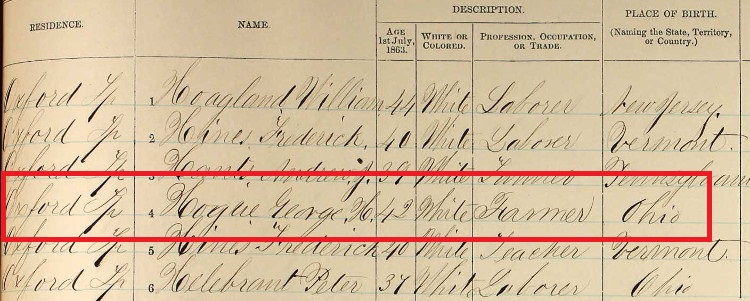 DESCRIPTION.
RESIDENCE. NAME. AGE 1st July, 1863. WHITE OR COLORED. PROFESSION, OCCUPATION, OR TRADE. PLACE OF BIRTH. (Naming the State, Territory, or Country.)
Oxford Tp 1 Hoagland William 44 White Laborer New Jersey
Oxford Tp 2 Hines Frederick 40 White Laborer Vermont
Oxford Tp 3 Andrew J. 39 White Pennsylvania
Oxford Tp 4 Hogue George H. 42 White Farmer Ohio
Oxford Tp 5 Hines Frederick 40 White Teacher Vermont
Oxford Tp 6 Helebrant Peter 37 White Laborer Ohio